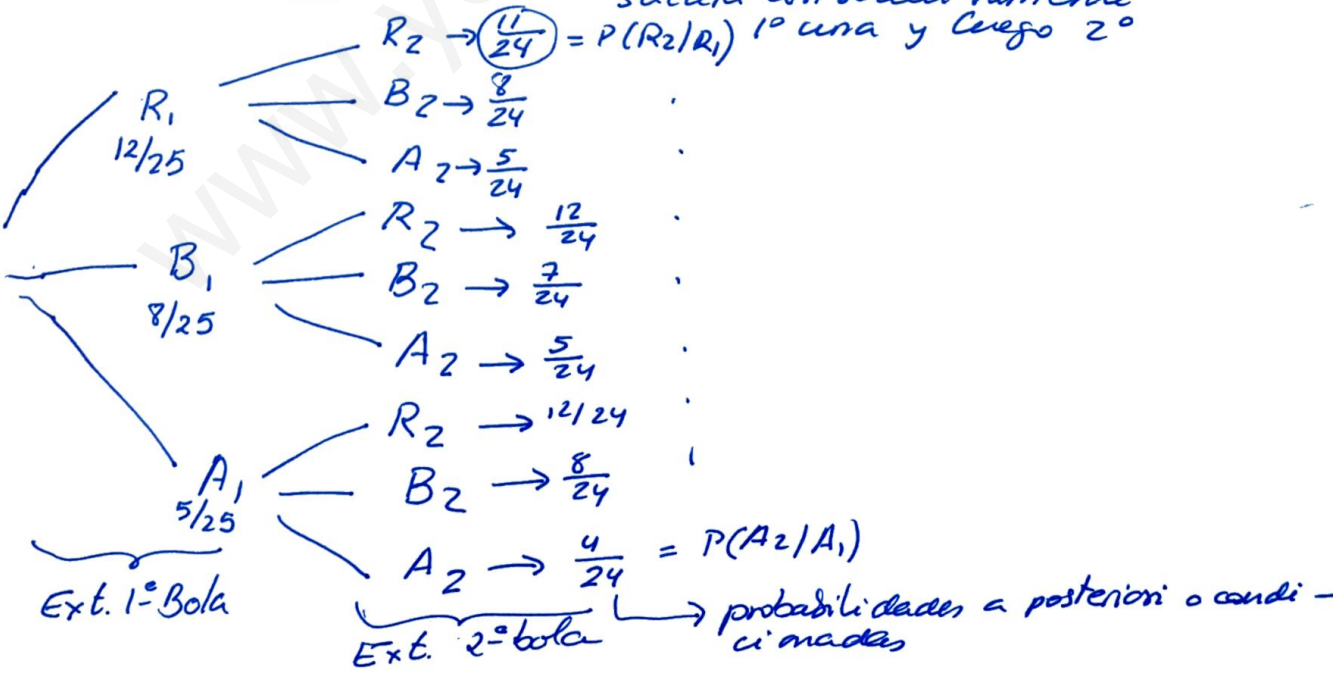 R2 → 11/24 = P(R2/R1) 1º una y luego 2º
B2 → 8/24
R1
12/25
A2 → 5/24
R2 → 12/24
B1
8/25
B2 → 7/24
A2 → 5/24
R2 → 12/24
A1
5/25
B2 → 8/24
A2 → 4/24 = P(A2/A1)
Ext. 1ª Bola
Ext. 2ª bola
→ probabilidades a posteriori o condi-
cionadas
www.y